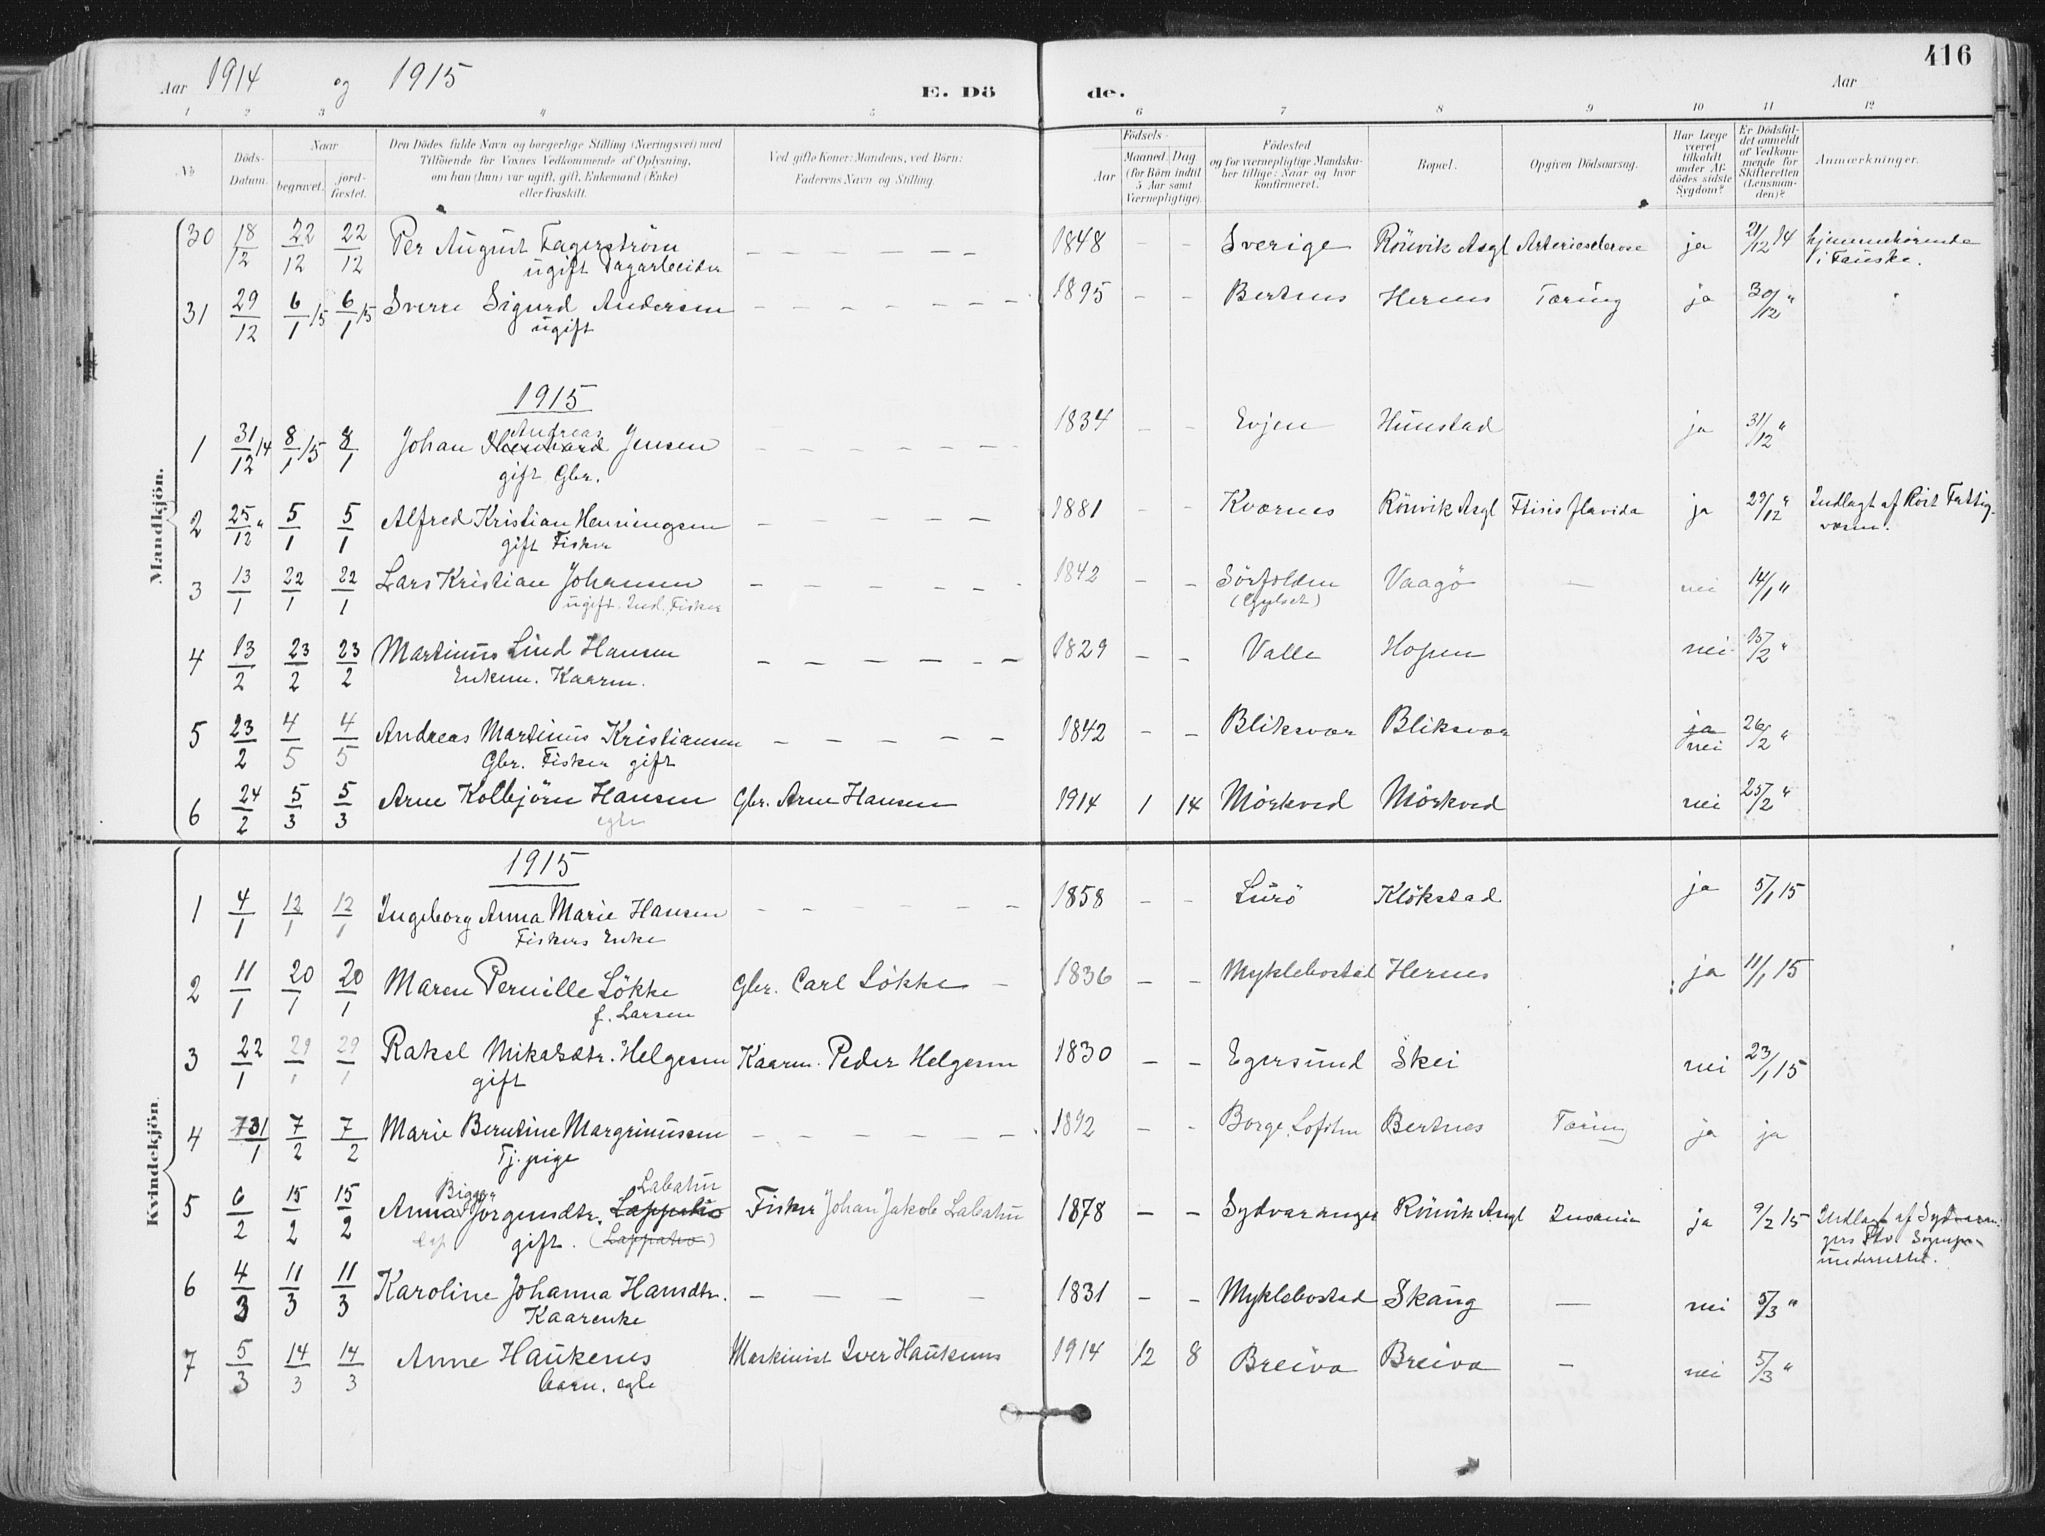 416
Aar 1914 og 1915 E. Dö de. Aar
1 2 3 4 5 6 7 8 9 10 11 12
№
Döds-Datum.
Naar
begravet.
jord-fæstet.
Den Dödes fulde Navn og borgerlige Stilling (Næringsvei) med
Tilföiende for Voxnes Vedkommende af Oplysning,
om han (hun) var ugift, gift, Enkemand (Enke)
eller fraskilt.
Ved gifte Koner: Mandens, ved Börn:
Faderens Navn og Stilling.
Födsels-
Aar
Maaned Dag
(for Börn indtil
5 Aar samt
Værnepligtige).
Födested
og for værnepligtige Mandska-
ber tillige: Naar og hvor
konfirmeret.
Bopæl.
Opgiven Dödsaarsag.
Har Læge
været
tilkaldt
under Af-
dödes sidste
Sygdom?
Er Dödsfal-
det anmeldt
af Vedkom-
mende for
Skifteretten
(Lensman-
den)?
Anmærkninger.
Mandkjön.
30 18/12 22/12 22/12 Per August Fagerström - - - - - - 1848 - - Sverige Rönvik Asyl Arteriesclerose ja 21/12 14 hjemmehörende
ugift Dagarbeider i Fauske.
31 29/12 6/1 15 6/1 15 Sverre Sigurd Andersen - - - - - - 1895 - - Bertnes Hernes Tæring ja 30/12 "
ugift
1915
Andreas
1 31/12 14 8/1 15 8/1 Johan Jensen - - - - - - 1834 - - Evjen Hunstad ja 31/12 "
gift Gbr.
2 25/12 " 5/1 5/1 Alfred Kristian Henningsen - - - - - 1881 - - Kværnes Rönvik Asyl Ftisis flavida ja 29/12 " Indlagt af Röst Fattig-
gift Fisker væsen.
3 13/1 22/1 22/1 Lars Kristian Johansen - - - - - 1842 - - Sörfolden Vaagö - nei 14/1 "
ugift. Ind. Fisker (Gyltset)
4 13/2 23/2 23/2 Martinus Lind Hansen - - - - - - 1829 - - Valle Hopen nei 15/2 "
Enkem. Kaarm.
5 23/2 4/5 4/5 Andreas Martinus Kristiansen - - - - - 1842 - - Bliksvær Bliksvær ja nei 26/2 "
Gbr. Fisker gift
6 24/2 5/3 5/3 Arne Kolbjörn Hansen Gbr. Arne Hansen 1914 1 14 Mörkved Mörkved nei 25/2 "
egte
Kvindekjön.
1915
1 4/1 12/1 12/1 Ingeborg Anna Marie Hansen - - - - - - 1858 - - Lurö Klökstad ja 5/1 15
Fiskers Enke
2 11/1 20/1 20/1 Maren Pernille Løkke Gbr. Carl Løkke - 1836 - - Myklebostad Hernes ja 11/1 15
f. Larsen
3 22/1 29/1 29/1 Rakel Mikalsdtr. Helgesen Kaarm. Peder Helgesen 1830 - - Egersund Skei nei 23/1 15
gift
4 31/1 7/2 7/2 Marie Berntine Margrinussen - - - - - - 1892 - - Borge, Lofoten Bertnes Tæring ja ja
Tj. pige
Bigga Labahu
5 6/2 15/2 15/2 Anna Jörgensdtr. Lappahio Fisker Johan Jakob Labahu 1878 - - Sydvaranger Rönvik Asyl Insania ja 9/2 15 Indlagt af Sydvaran-
Lap gift. (Lappatio) gers Ftv. Sognepr.
underrettet.
6 4/3 11/3 11/3 Karoline Johanna Hansdtr. - - - - 1831 - - Myklebostad Skaug - nei 5/3 "
Kaarenke
7 5/3 14/3 14/3 Anne Haukenes Maskinist Iver Haukenes 1914 12 8 Breiva Breiva - nei 5/3 "
barn. egte